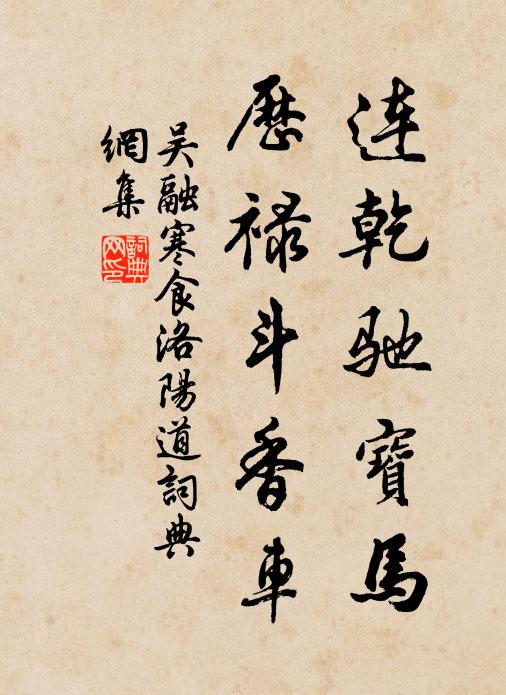 連乾馳寶馬
歷禄斗香車
吴融寒食洛陽道詞典
網集
詞典
网印